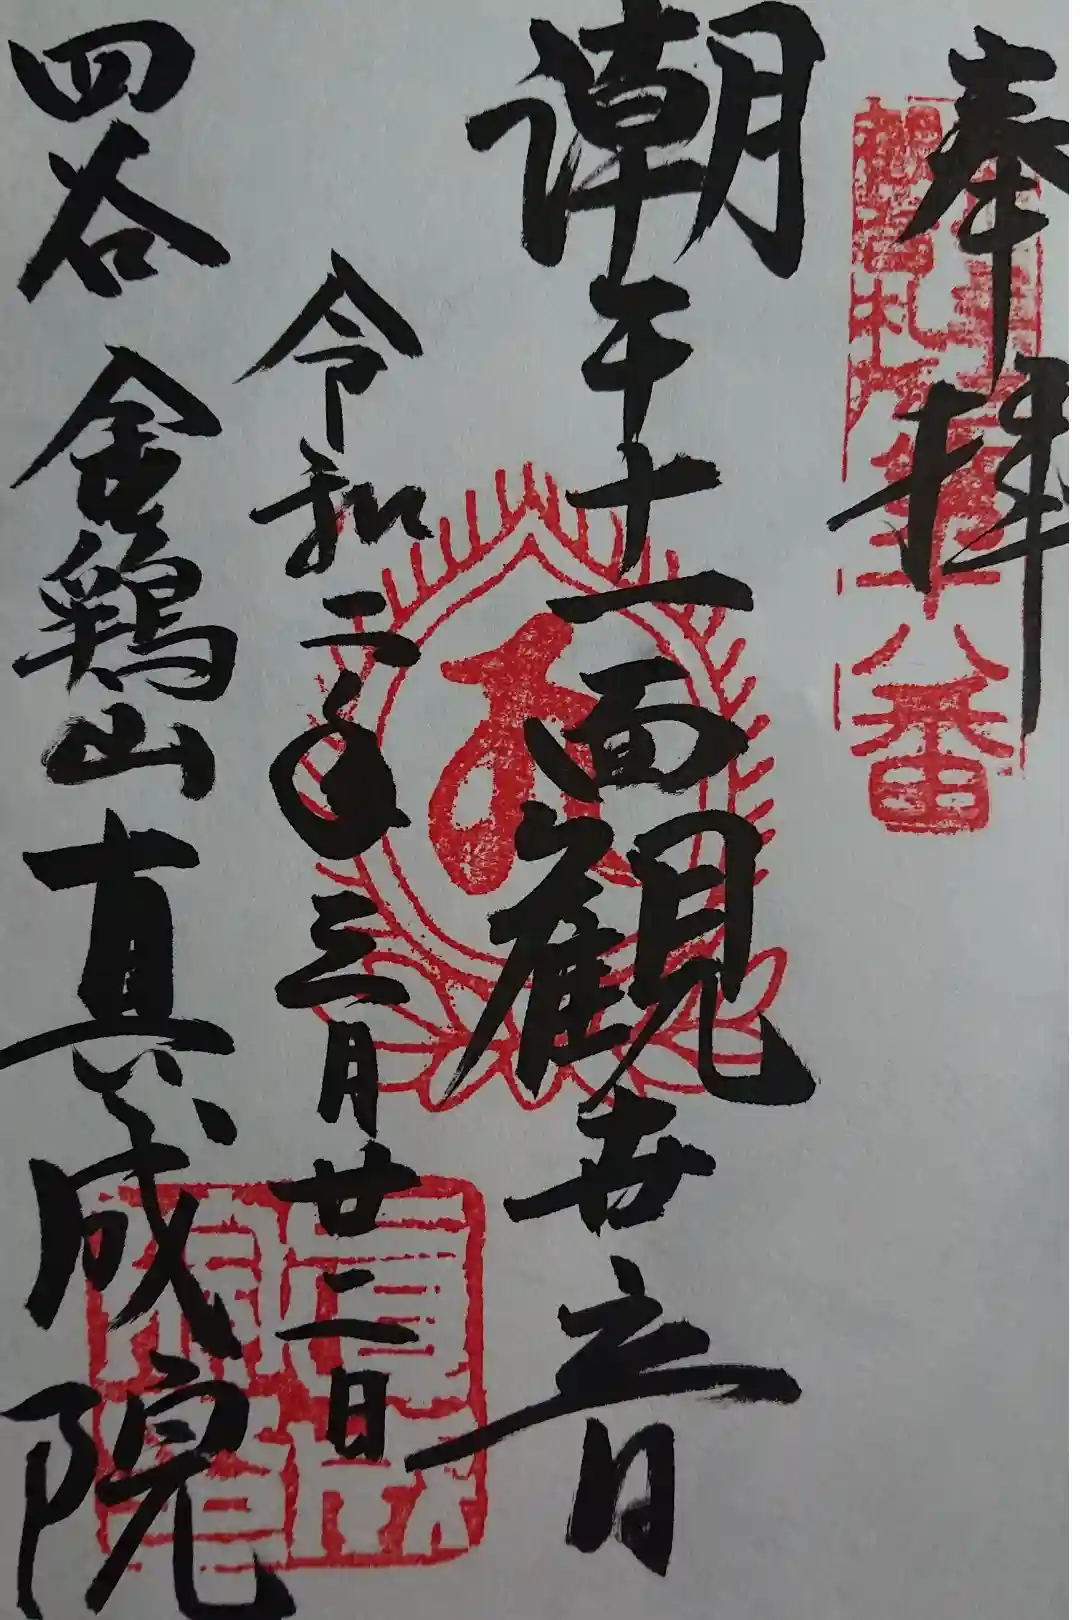 奉拝
観音札所
第十八番
潮干十一面観世音
令和二年三月廿二日
四谷 金鶏山 真成院